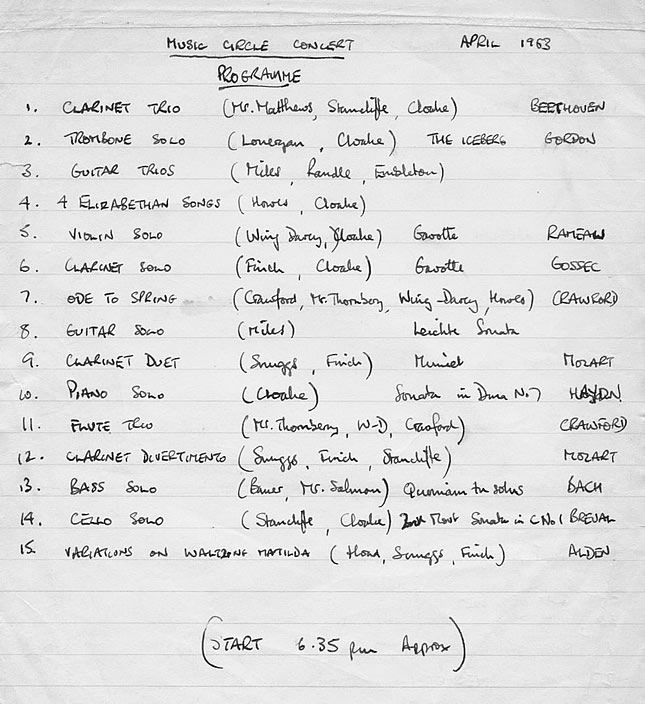 MUSIC CIRCLE CONCERT APRIL 1963
PROGRAMME
1. CLARINET TRIO (Mr. Matthews, Stancliffe, Cloake) BEETHOVEN
2. TROMBONE SOLO (Lonergan, Cloake) THE ICEBERG GORDON
3. GUITAR TRIOS (Miles, Randle, Embleton)
4. 4 ELIZABETHAN SONGS (Howes, Cloake)
5. VIOLIN SOLO (Wing Darcy, Cloake) Gavotte RAMEAU
6. CLARINET SOLO (Finch, Cloake) Gavotte GOSSEC
7. ODE TO SPRING (Crawford, Mr. Thornbery, Wing-Darcy, Howes) CRAWFORD
8. GUITAR SOLO (Miles) Leichte Sonata
9. CLARINET DUET (Snuggs, Finch) Minuet MOZART
10. PIANO SOLO (Cloake) Sonata in D No 7 HAYDN
11. FLUTE TRIO (Mr. Thornbery, W-D, Crawford) CRAWFORD
12. CLARINET DIVERTIMENTO (Snuggs, Finch, Stancliffe) MOZART
13. BASS SOLO (Mr. Salmon) Quoniam tu solus BACH
14. CELLO SOLO (Stancliffe, Cloake) 2nd Movt Sonata in C No 1 BREVAL
15. VARIATIONS ON WALTZING MATILDA (Hoad, Snuggs, Finch) ALDEN
(START 6.35 pm Approx)